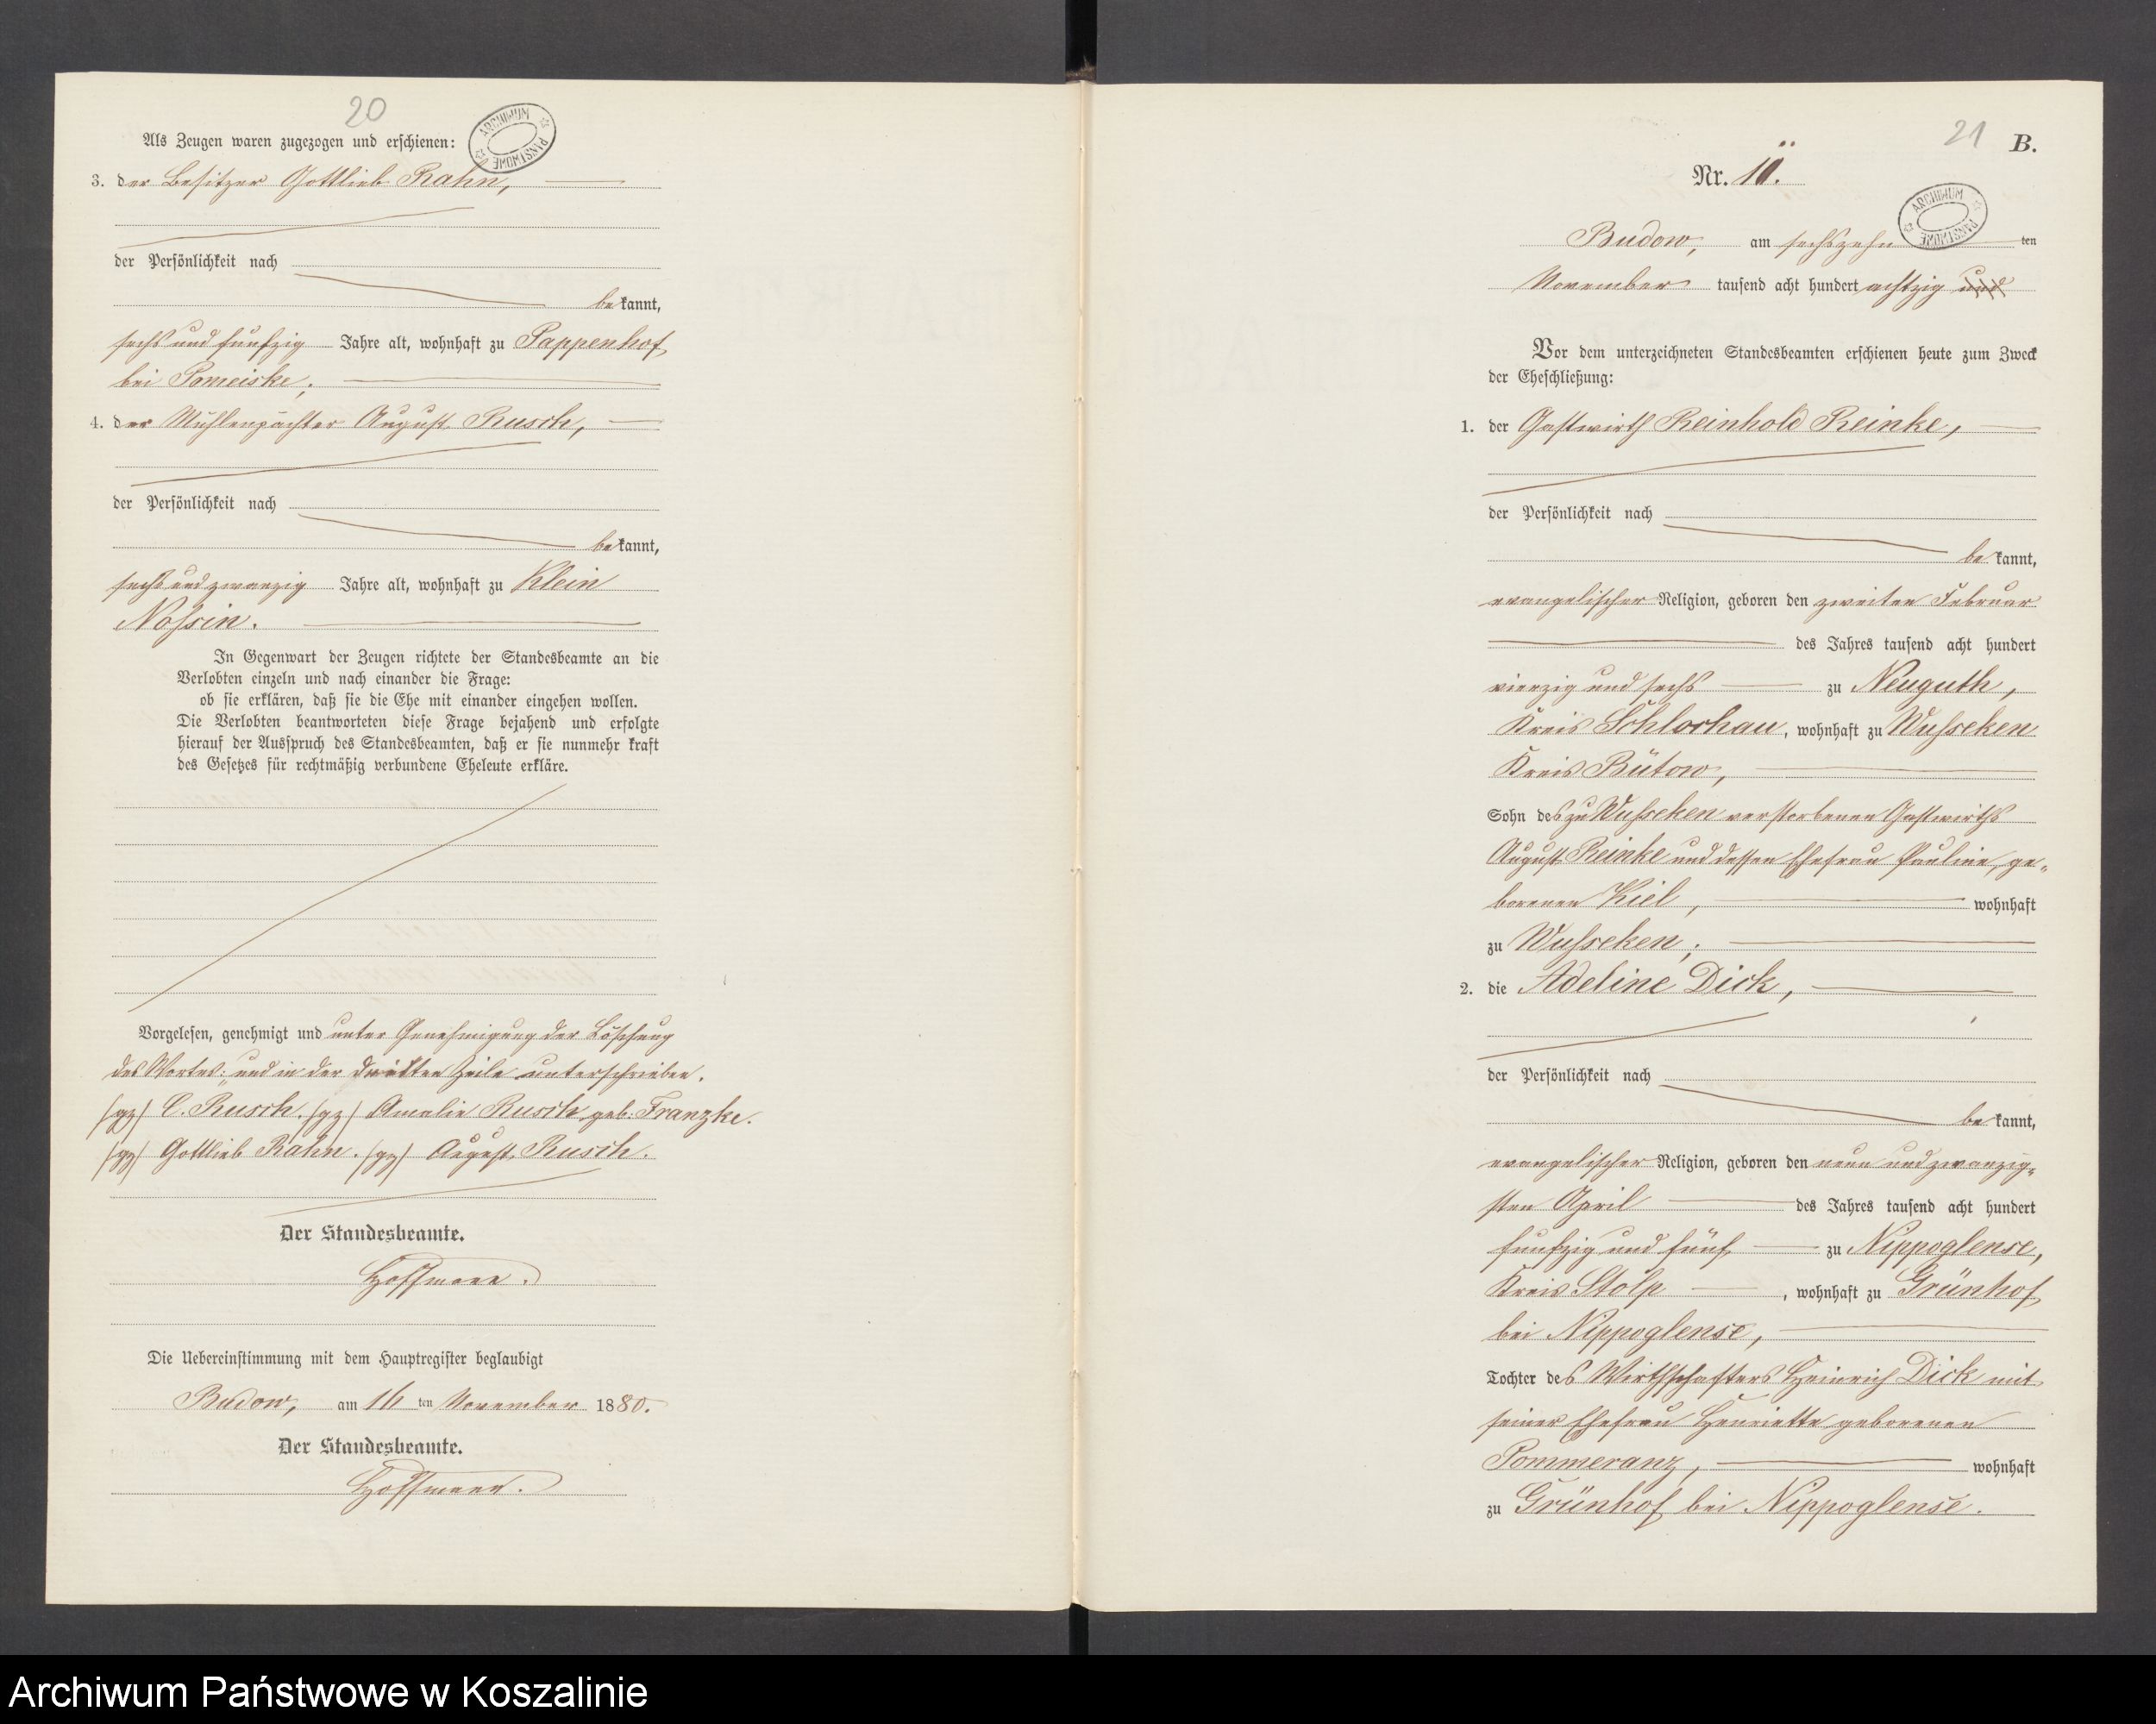 20
ARCHIWUM PAŃSTWOWE
Als Zeugen waren zugezogen und erschienen:
3. der Besitzer Gottlieb Rahn,
der Persönlichkeit nach
bekannt,
sechs und fünfzig Jahre alt, wohnhaft zu Pappenhof
bei Pomeiske;
4. der Mühlenpächter August Rusch,
der Persönlichkeit nach
bekannt,
sechs und zwanzig Jahre alt, wohnhaft zu Klein
Nossin.
In Gegenwart der Zeugen richtete der Standesbeamte an die
Verlobten einzeln und nach einander die Frage:
ob sie erklären, daß sie die Ehe mit einander eingehen wollen.
Die Verlobten beantworteten diese Frage bejahend und erfolgte
hierauf der Ausspruch des Standesbeamten, daß er sie nunmehr kraft
des Gesetzes für rechtmäßig verbundene Eheleute erkläre.
Vorgelesen, genehmigt und unter Genehmigung der Löschung
des Wortes: „und in der dritten Zeile unterschrieben.
(gz) C. Rusch. (gz) Amalie Rusch geb: Franzke.
(gz) Gottlieb Rahn. (gz) August Rusch.
Der Standesbeamte.
Hoffmann.
Die Uebereinstimmung mit dem Hauptregister beglaubigt
Budow, am 16ten November 1880.
Der Standesbeamte.
Hoffmann.
21
B.
Nr. 10.
ARCHIWUM PAŃSTWOWE
Budow, am sechszehnten
November tausend acht hundert achtzig und
Vor dem unterzeichneten Standesbeamten erschienen heute zum Zweck
der Eheschließung:
1. der Gastwirth Reinhold Reinke,
der Persönlichkeit nach
bekannt,
evangelischer Religion, geboren den zweiten Februar
des Jahres tausend acht hundert
vierzig und sechs zu Neuguth,
Kreis Schlochau, wohnhaft zu Wusseken
Kreis Bütow,
Sohn des zu Wusseken verstorbenen Gastwirths
August Reinke und dessen Ehefrau Pauline, ge-
borenen Kiel, wohnhaft
zu Wusseken;
2. die Adeline Dick,
der Persönlichkeit nach
bekannt,
evangelischer Religion, geboren den neun und zwanzig-
sten April des Jahres tausend acht hundert
funfzig und fünf zu Nippoglense,
Kreis Stolp, wohnhaft zu Grünhof
bei Nippoglense,
Tochter des Wirthschafters Heinrich Dick mit
seiner Ehefrau Henriette geborenen
Pommeranz, wohnhaft
zu Grünhof bei Nippoglense.
Archiwum Państwowe w Koszalinie